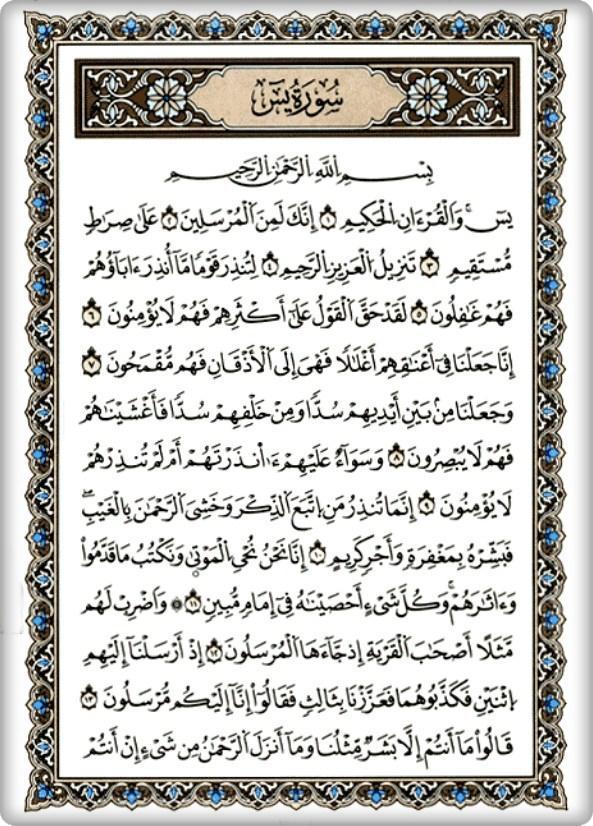 سُورَةُ يسٓ
بِسْمِ اللَّهِ الرَّحْمَٰنِ الرَّحِيمِ
يسٓۚ وَالْقُرْءَانِ الْحَكِيمِ ١ إِنَّكَ لَمِنَ الْمُرْسَلِينَ ٢ عَلَىٰ صِرَاطٍ
مُّسْتَقِيمٍ ٣ تَنزِيلُ الْعَزِيزِ الرَّحِيمِ ٤ لِتُنذِرَ قَوْمًا مَّا أُنذِرَ ءَابَاؤُهُمْ
فَهُمْ غَٰفِلُونَ ٥ لَقَدْ حَقَّ الْقَوْلُ عَلَىٰ أَكْثَرِهِمْ فَهُمْ لَا يُؤْمِنُونَ ٦
إِنَّا جَعَلْنَا فِي أَعْنَٰقِهِمْ أَغْلَٰلًا فَهِيَ إِلَى الْأَذْقَانِ فَهُم مُّقْمَحُونَ ٧
وَجَعَلْنَا مِنۢ بَيْنِ أَيْدِيهِمْ سُدًّا وَمِنْ خَلْفِهِمْ سُدًّا فَأَغْشَيْنَٰهُمْ
فَهُمْ لَا يُبْصِرُونَ ٨ وَسَوَآءٌ عَلَيْهِمْ ءَا۬نذَرْتَهُمْ أَمْ لَمْ تُنذِرْهُمْ
لَا يُؤْمِنُونَ ٩ إِنَّمَا تُنذِرُ مَنِ اتَّبَعَ الذِّكْرَ وَخَشِيَ الرَّحْمَٰنَ بِالْغَيْبِۖ
فَبَشِّرْهُ بِمَغْفِرَةٍ وَأَجْرٍ كَرِيمٍ ١٠ إِنَّا نَحْنُ نُحْيِ الْمَوْتَىٰ وَنَكْتُبُ مَا قَدَّمُوا
وَءَاثَٰرَهُمْۚ وَكُلَّ شَيْءٍ أَحْصَيْنَٰهُ فِي إِمَامٍ مُّبِينٍ ١١ ۞ وَاضْرِبْ لَهُم
مَّثَلًا أَصْحَٰبَ الْقَرْيَةِ إِذْ جَآءَهَا الْمُرْسَلُونَ ١٢ إِذْ أَرْسَلْنَا إِلَيْهِمُ
اثْنَيْنِ فَكَذَّبُوهُمَا فَعَزَّزْنَا بِثَالِثٍ فَقَالُوٓا إِنَّآ إِلَيْكُم مُّرْسَلُونَ ١٣
قَالُوا مَآ أَنتُمْ إِلَّا بَشَرٌ مِّثْلُنَا وَمَآ أَنزَلَ الرَّحْمَٰنُ مِن شَيْءٍ إِنْ أَنتُمْ